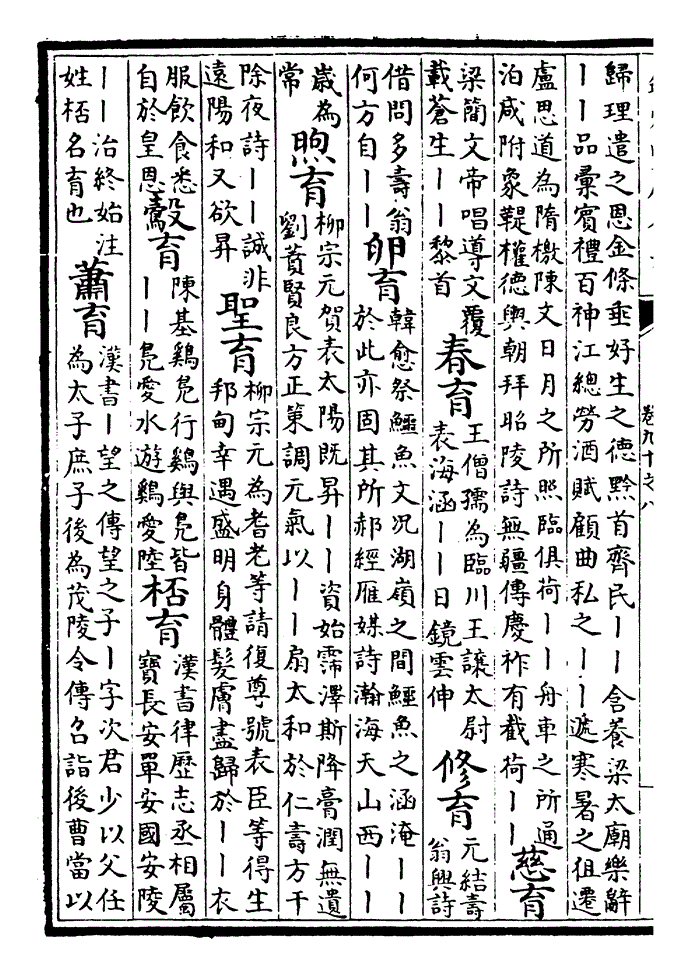 歸理遣之恩金條垂好生之德黔首齊民——含養梁太廟樂辭
——品彙賓禮百神江總勞酒賦顧曲私之——遞寒暑之徂遷
盧思道為隋檄陳文日月之所照臨俱荷——舟車之所通
泊咸附象鞮權德輿朝拜昭陵詩無疆傳慶祚有截荷——
慈育
梁簡文帝唱導文覆
載蒼生——黎首
春育
王僧孺為臨川王讓太尉
表海涵——日鏡雲伸
修育
元結壽
翁興詩
借問多壽翁
何方自——
卵育
韓愈祭鱷魚文况湖嶺之間鱷魚之涵淹——
於此亦固其所郝經雁媒詩瀚海天山西——
歲為
常
煦育
柳宗元賀表太陽既昇——資始霈澤斯降膏潤無遺
劉蕡賢良方正策調元氣以——扇太和於仁壽方干
除夜詩——誠非
遠陽和又欲昇
聖育
柳宗元為耆老等請復尊號表臣等得生
邦甸幸遇盛明身體髮膚盡歸於——衣
服飲食悉
自於皇恩
鷇育
陳基鷄鳧行鷄與鳧皆
——鳧愛水遊鷄愛陸
栝育
漢書律歷志丞相屬
寶長安單安國安陵
——治終始注
姓栝名育也
蕭育
漢書—望之傳望之子—字次君少以父任
為太子庶子後為茂陵令傳召詣後曹當以
卷九十之八